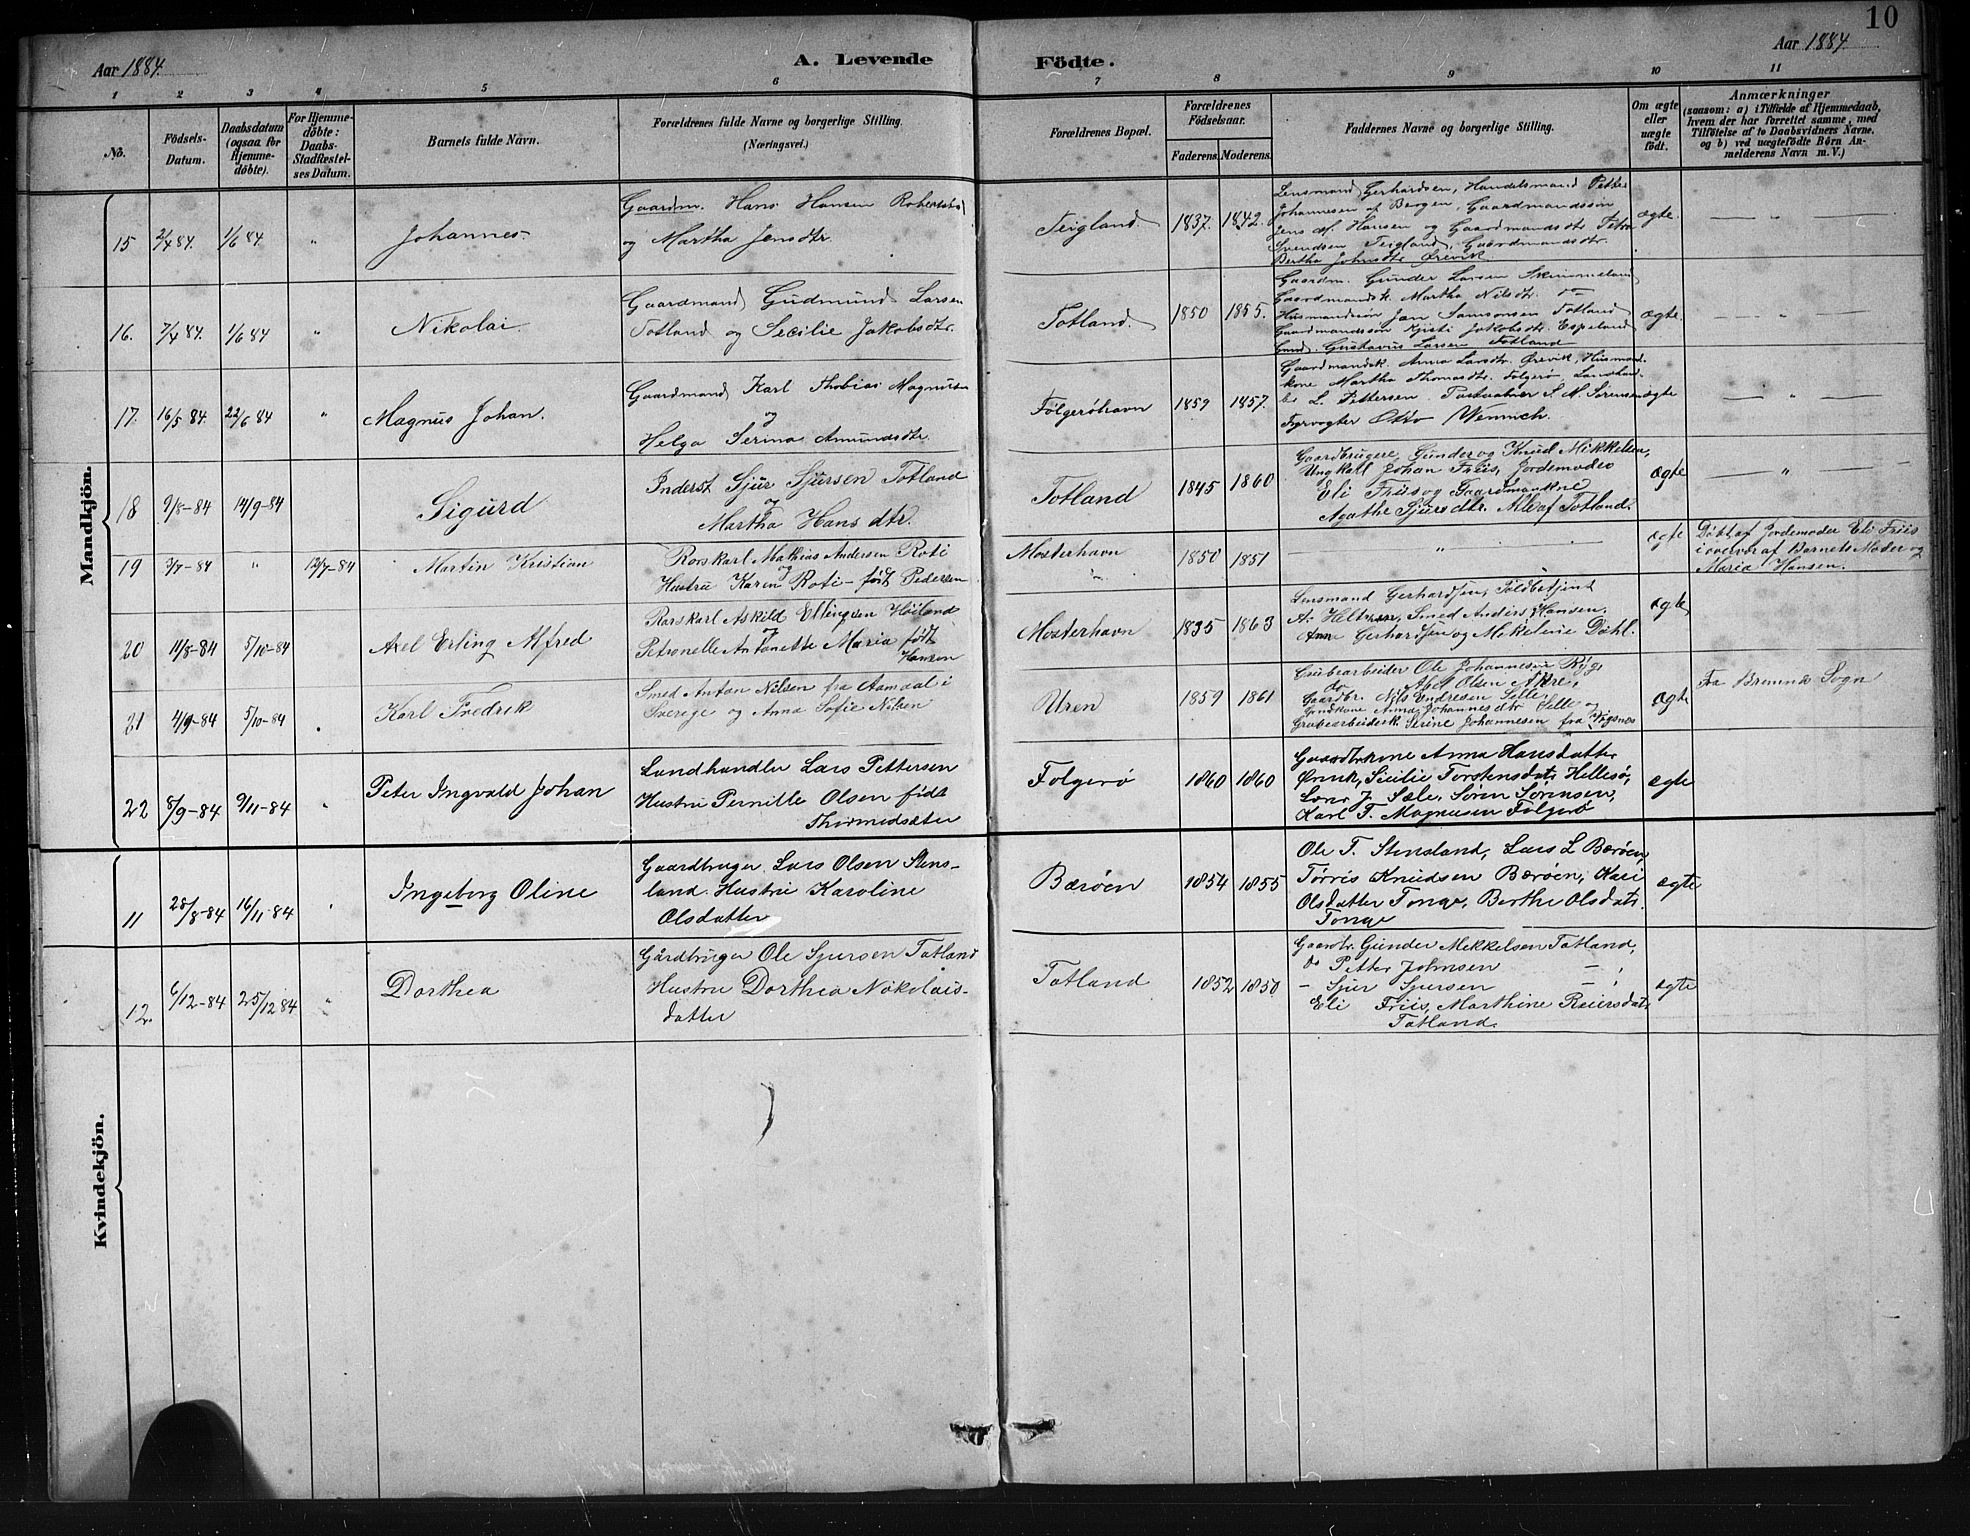 10
Aar 1884.
A. Levende
Födte.
Aar 1884.
1 2 3 4 5 6 7 8 9 10 11
No.
Födsels-
Datum.
Daabsdatum
(ogsaa for
Hjemme-
döbte).
For Hjemme-
döbte:
Daabs-
Stadfæstel-
ses Datum.
Barnets fulde Navn.
Forældrenes fulde Navne og borgerlige Stilling.
(Næringsvei.)
Forældrenes Bopæl.
Forældrenes
Födselsaar.
Faderens. Moderens.
Faddernes Navne og borgerlige Stilling.
Om ægte
eller
uægte
födt.
Anmærkninger
(saasom: a) i Tilfælde af Hjemmedaab,
hvem der har forrettet samme, med
Tilföielse af to Daabsvidners Navne,
og b) ved uægtefödte Börn An-
melderens Navn m.V.)
Mandkjön.
15 2/4 84. 1/6 84 "
Johannes.
Gaardm. Hans Hansen
og Martha Jensdtr.
Teigland.
1837. 1842.
Lensmand Gerhardsen, Handelsmand Petter
Johannesen af Bergen, Gaardmandssön
Jens M. Hansen og Gaardmandsdtr. Petra
Svendsen Teigland, Gaardmandsdtr.
Bertha Johnsdtr. Ørevik
ægte.
— " —
16. 7/4 84. 1/6 84 "
Nikolai
Gaardmand Gudmund Larsen
Totland og Secilie Jakobsdtr.
Totland.
1850 1855.
Gaardm. Gunder Larsen
Gaardmandsk. Martha Nilsdtr.
Husmandssön Jan Samsonsen Totland
Gaardmandssön Kjisti Jakobsdtr. Espeland
Gustavus Larsen Totland
ægte.
— " —
17. 16/5 84. 22/6 84 "
Magnus Johan.
Gaardmand Karl Thobias Magnusen
og
Helga Serina Amundsdtr.
Fölgeröhavn
1859 1857.
Gaardmandsk. Anna Larsdtr. Ørevik, Husmands
kone Martha Thomasdtr. Folgerö
L. Pettersen. Postaabner S. M. Sörensen
Fyrvogter Otto Wennich.
ægte
— " —
18 9/8-84 14/9-84
Sigurd
Inderst Sjur Sjursen Totland
og
Martha Hansdtr.
Totland
1845 1860
Gaardbrugere, Gunder og Knud Mikkelsen,
Ungkall Johan Friis, Jordemoder
Eli Friis og Gaardmankne
Agathe Sjursdtr. Alle af Totland.
ægte
— " —
19 3/7-84 " 12/7-84
Martin Kristian
Rorskarl Mathias Andersen Roti
og
Hustru Karen Roti - født Pedersen
Mosterhavn
1850 1851
— " —
ægte
Döbt af Jordemoder Eli Friis
i overvær af Barnets Moder og
Maria Hansen.
20 11/8-84 5/10-84
Axel Erling Alfred
Rorskarl Askild Ellingsen Höiland
og
Petronelle Antonette Maria født
Hansen
Mosterhavn
1835 1863
Lensmand Gerhardsen, Toldbetjent
A. Anders Hansen.
Anne Gerhardsen og Mekeline Dahl.
ægte
21 4/9-84 5/10-84
Karl Fredrik
Smed Anton Nilsen fra Aamaal i
Sverige og Anna Sofie Nilsen
Uren
1859 1861
Grubearbeider Ole Johannesen Ryg,
do Abel Olsen
Gaardbr. Nils Endresen Selle,
Anna Johannesdtr Selle og
Grubearbeidersk. Serine Johannesen fra Vigsnæs
ægte
Fra Bremnæs Sogn
22 8/9-84 9/11-84 "
Peter Ingvald Johan
Landhandler Lars Pettersen
Hustru Pernille Olsen født
Folgerö
1860 1860
Gaardbrkone Anna Hansdatter
Secilie Torstensdatr Hellesö,
Lars J. Sæle, Sören Sörensen,
Karl T. Magnusen Folgerö
ægte
Kvindekjön.
11 28/8-84 16/11-84
Ingeborg Oline
Gaardbruger. Lars Olsen Stens-
land. Hustru Karoline
Olsdatter
Bæröen
1854 1855
Ole T. Stensland, Lars L Bæröen,
Törris Knudsen Bæröen, Kari
Olsdatter Tonge, Berthe Olsdatr.
Tonge
ægte
12. 6/12-84 25/12 84 "
Dorthea
Gårdbruger Ole Sjursen Totland
Hustru Dorthea Nokolais-
datter
Totland
1852 1850
Gaardbr. Gunder Mekkelsen Totland,
do Petter Johnsen — ,
- Sjur Sjursen — ,
Eli Friis, Marthine Reiersdatr.
Totland.
ægte